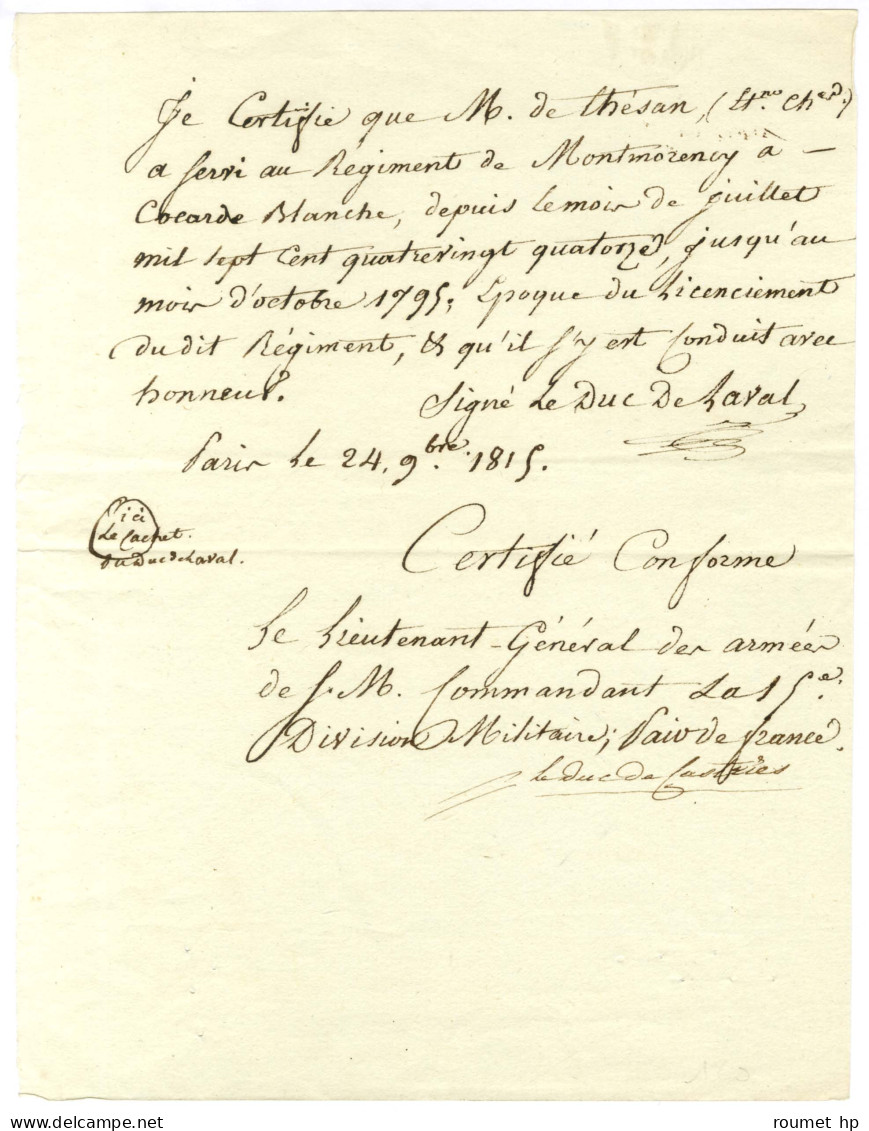 Je Certifie que M. de thésan, (
a servi au Régiment de Montmorency à –
Cocarde Blanche, depuis le mois de juillet
mil sept Cent quatrevingt quatorze, jusqu'au
mois d'octobre 1795; Epoque du Licenciement
du dit Régiment, & qu'il s'y est Conduit avec
honneur.
Signé Le Duc De Laval
Paris Le 24. 9bre. 1815.
ici
Le Cachet
Du Duc de Laval.
Certifié Conforme
Le Lieutenant-Général des armées
de S. M. Commandant La 15e.
Division Militaire; Pair de france.
Le Duc de Castries
roumet hp